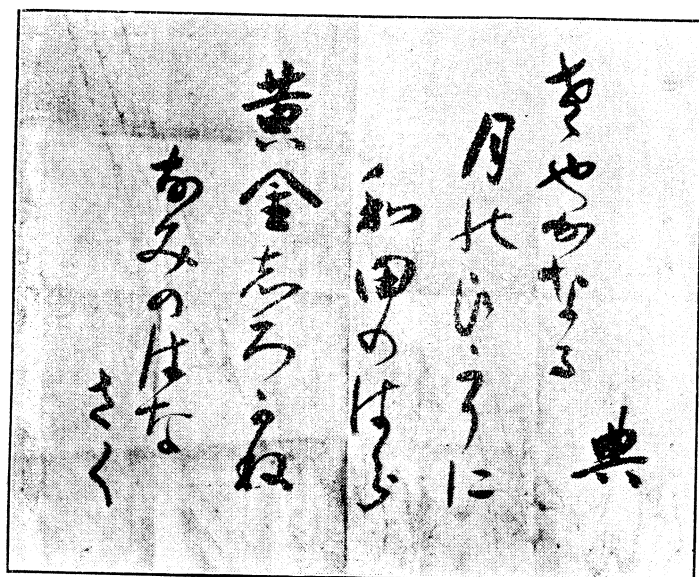 典
さやかなる
月のひかりに
和田のはら
黄金志ろかね
なみのはな
さく